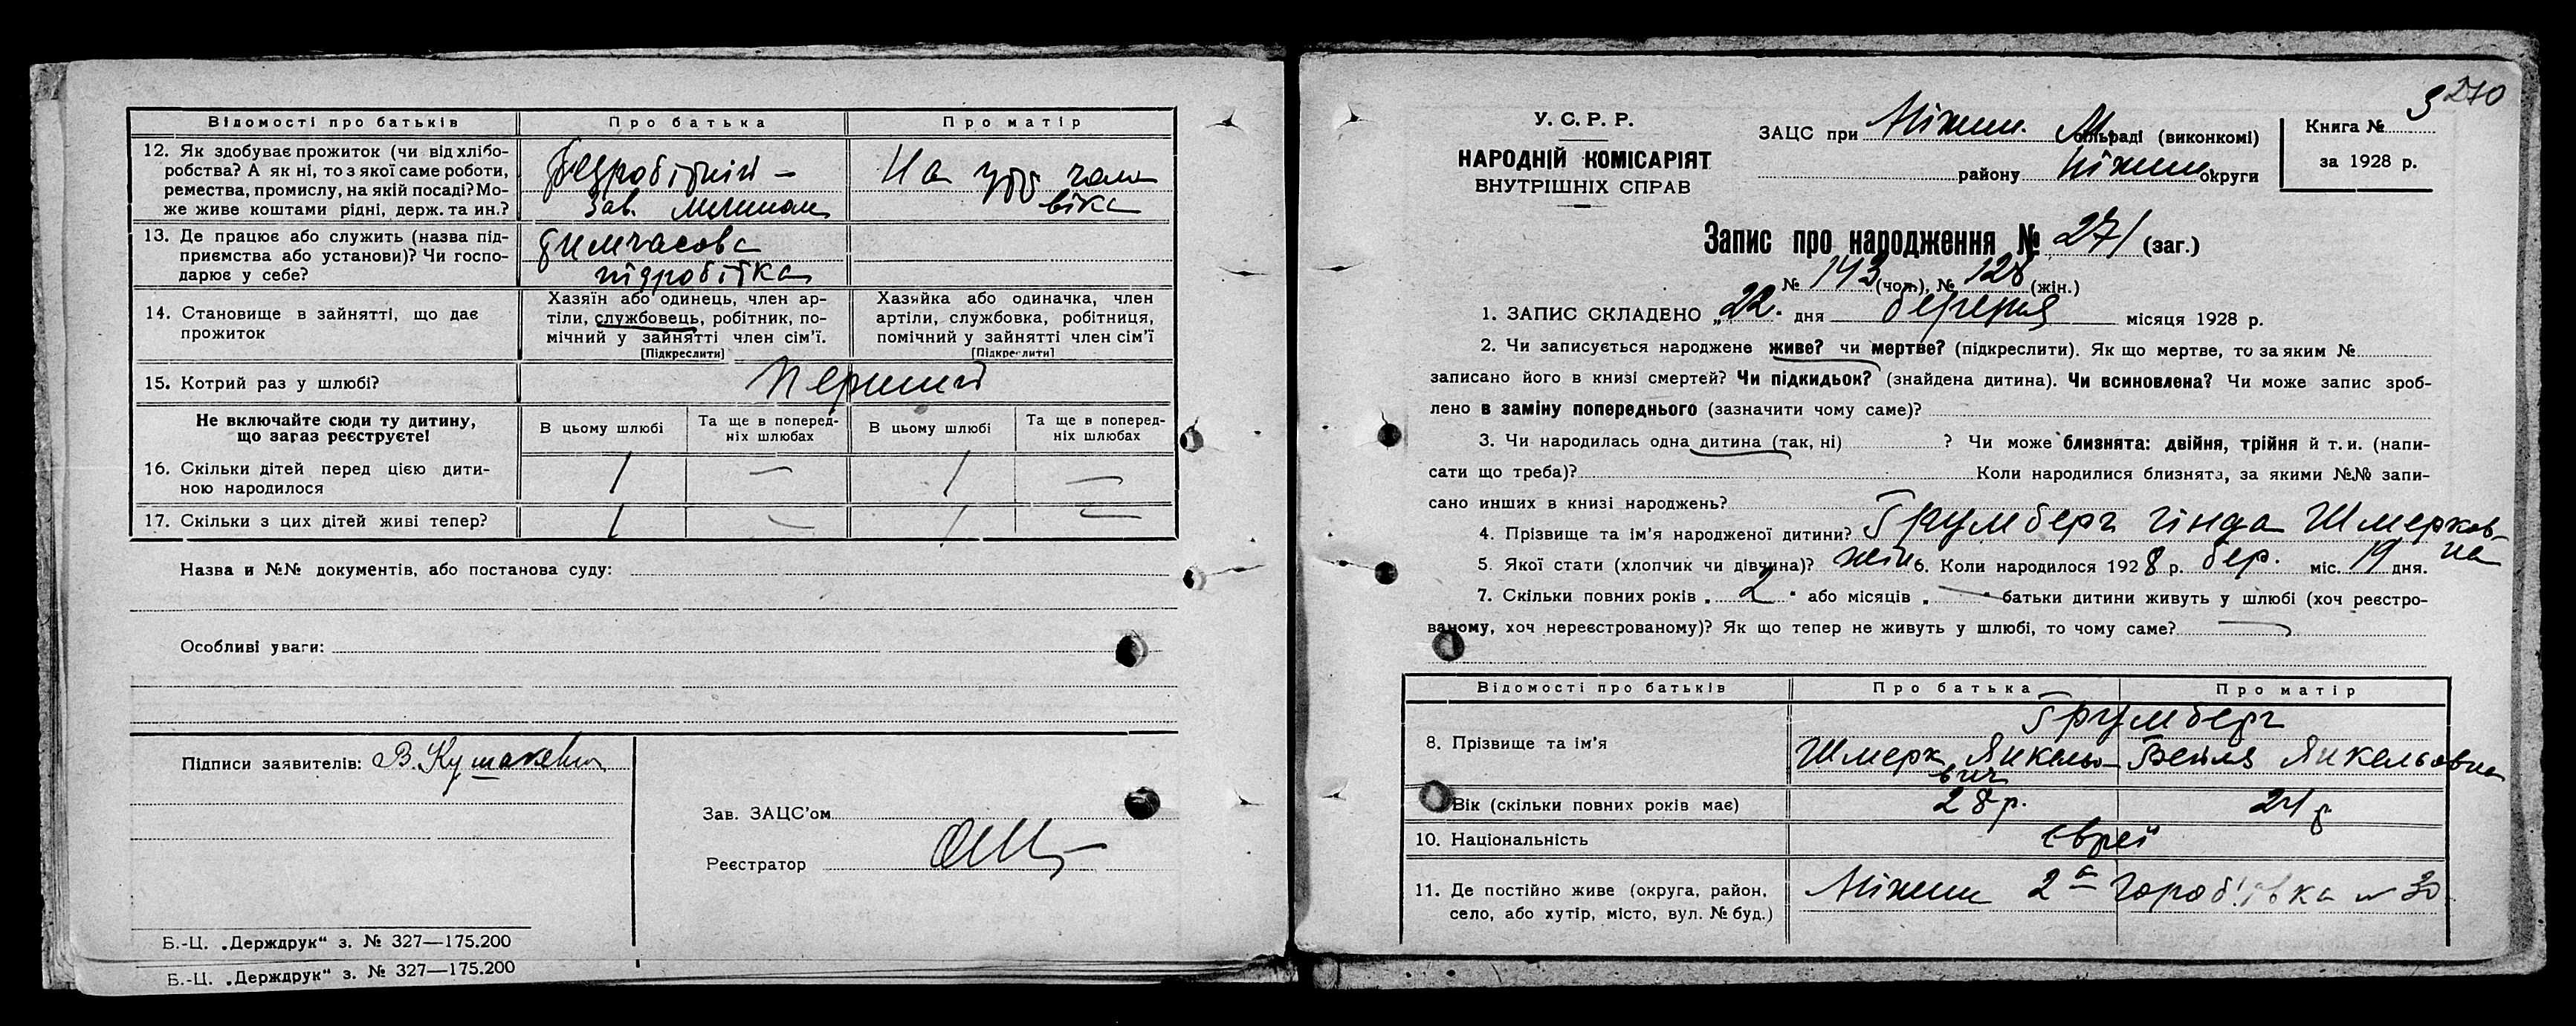 Відомості про батьків Про батька Про матір
12. Як здобуває прожиток (чи від хлібо-
робства? А як ні, то з якої саме роботи,
ремества, промислу, на якій посаді? Мо-
же живе коштами рідні, держ. та ин.?
Безробітній –
Зав.
На утр чоло
віка
13. Де працює або служить (назва під-
приємства або установи)? Чи госпо-
дарює у себе?
тимчасова
підробітка
14. Становище в зайнятті, що дає
прожиток
Хазяїн або одинець, член ар-
тіли, службовець, робітник, по-
мічний у зайнятті член сім'ї.
[Підкреслити]
Хазяйка або одиначка, член
артіли, службовка, робітниця,
помічний у зайнятті член сім'ї
[Підкреслити]
15. Котрий раз у шлюбі? Перший
Не включайте сюди ту дитину,
що зараз реєструєте!
В цьому шлюбі
Та ще в поперед-
ніх шлюбах
В цьому шлюбі
Та ще в поперед-
ніх шлюбах
16. Скільки дітей перед цією дити-
ною народилося
1 — 1 —
17. Скільки з цих дітей живі тепер? 1 — 1 —
Назва и №№ документів, або постанова суду:
Особливі уваги:
Підписи заявителів: В. Кушакевич
Зав. ЗАЦС'ом
Реєстратор
Б.-Ц. „Держдрук“ з. № 327—175.200
Б.-Ц. „Держдрук“ з. № 327—175.200
270
У. С. Р. Р.
НАРОДНІЙ КОМІСАРІЯТ
ВНУТРІШНІХ СПРАВ
ЗАЦС при Ніжин. М. сільраді (виконкомі)
району Ніжин округи
Книга № 3
за 1928 р.
Запис про народження № 271 (заг.)
№ 143 (чол.), № 128 (жін.)
1. ЗАПИС СКЛАДЕНО „22. дня березня місяця 1928 р.
2. Чи записується народжене живе? чи мертве? (підкреслити). Як що мертве, то за яким №
записано його в книзі смертей? Чи підкидьок? (знайдена дитина). Чи всиновлена? Чи може запис зроб-
лено в заміну попереднього (зазначити чому саме)?
3. Чи народилась одна дитина (так, ні) ? Чи може близнята: двійня, трійня й т. и. (напи-
сати що треба)? Коли народилися близнята, за якими №№ запи-
сано инших в книзі народжень?
4. Прізвище та ім'я народженої дитини? Грумберг Гінда Шмерков-
на
5. Якої стати (хлопчик чи дівчина)? жін 6. Коли народилося 1928 р. бер. міс. 19 дня.
7. Скільки повних років „ 2 “ або місяців „ — “ батьки дитини живуть у шлюбі (хоч реєстро-
ваному, хоч нереєстрованому)? Як що тепер не живуть у шлюбі, то чому саме? —
Відомості про батьків Про батька Про матір
8. Прізвище та ім'я
Грумберг
Шмерк Янкельо- Бейля Янкельовна
вич
Вік (скільки повних років має) 28 р. 24 р
10. Національність євреї
11. Де постійно живе (округа, район,
село, або хутір, місто, вул. № буд.)
Ніжин 2а Гороб'івка № 30